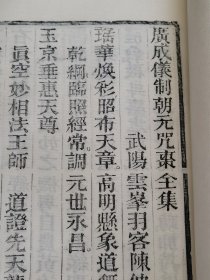 廣成儀制朝元咒棗全集
武陽雲峯羽客陳仲
瑶華煥彩昭布天章高明懸象道無
乾綱臨照經常調元世永昌
玉京垂惠天尊
眞空妙相法王師
道證先天龍